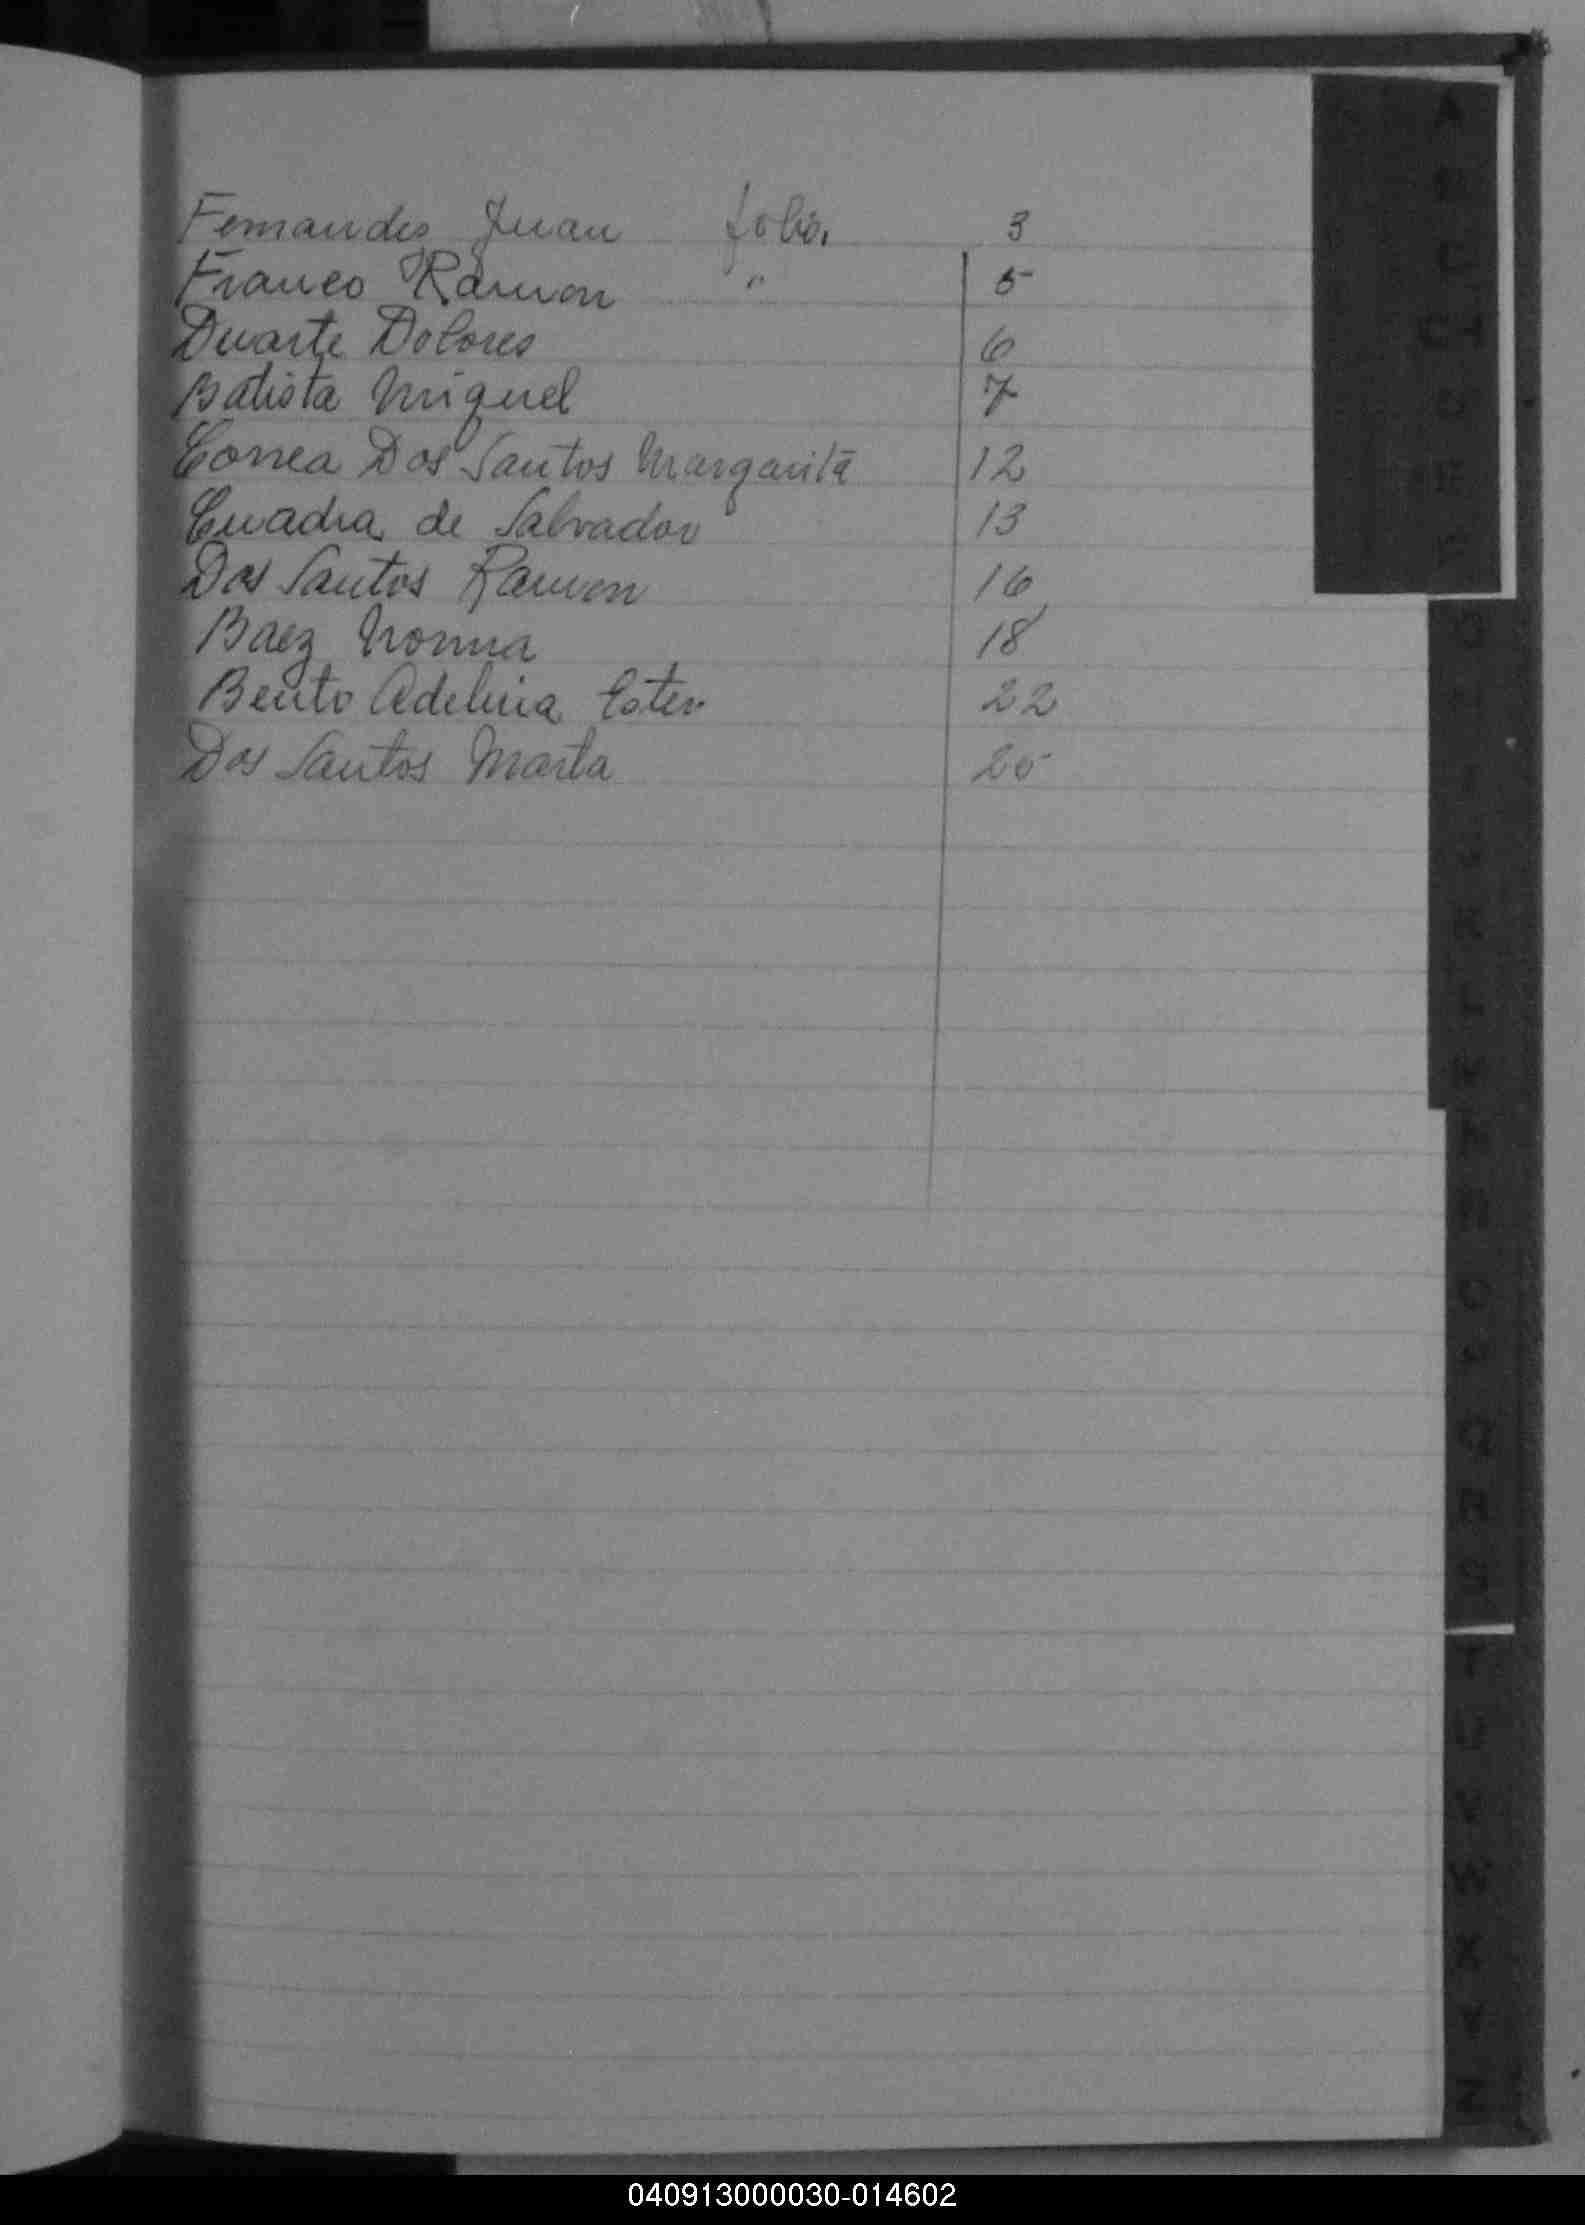 Fernandes Juan folio. 3
Franco Ramon " 5
Duarte Dolores 6
Batista Miguel 7
Correa Dos Santos Margarita 12
Cuadra de Salvador 13
Dos Santos Ramon 16
Baez Norma 18
Bento Adelina Ester 22
Dos Santos Marta 25
A
C
CH
D
E
F
G
H
I
J
K
L
M
N
Ñ
O
P
Q
R
S
T
U
V
W
X
Y
Z
040913000030-014602